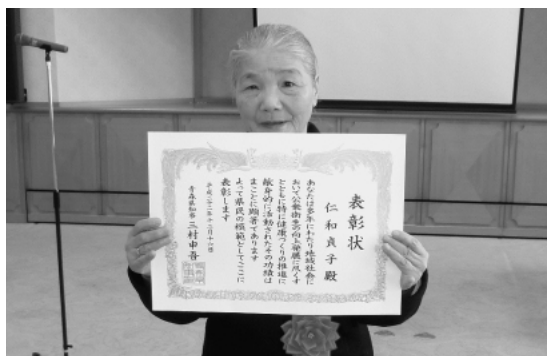 表彰状
仁和貞子殿
あなたは多年にわたり地域社会に
おいて公衆衛生の向上発展に尽くす
とともに特に健康づくりの推進に
献身的に活動されたその功績は
まことに顕著であります
よって県民の模範としてここに
表彰します
青森県知事 三村申吾